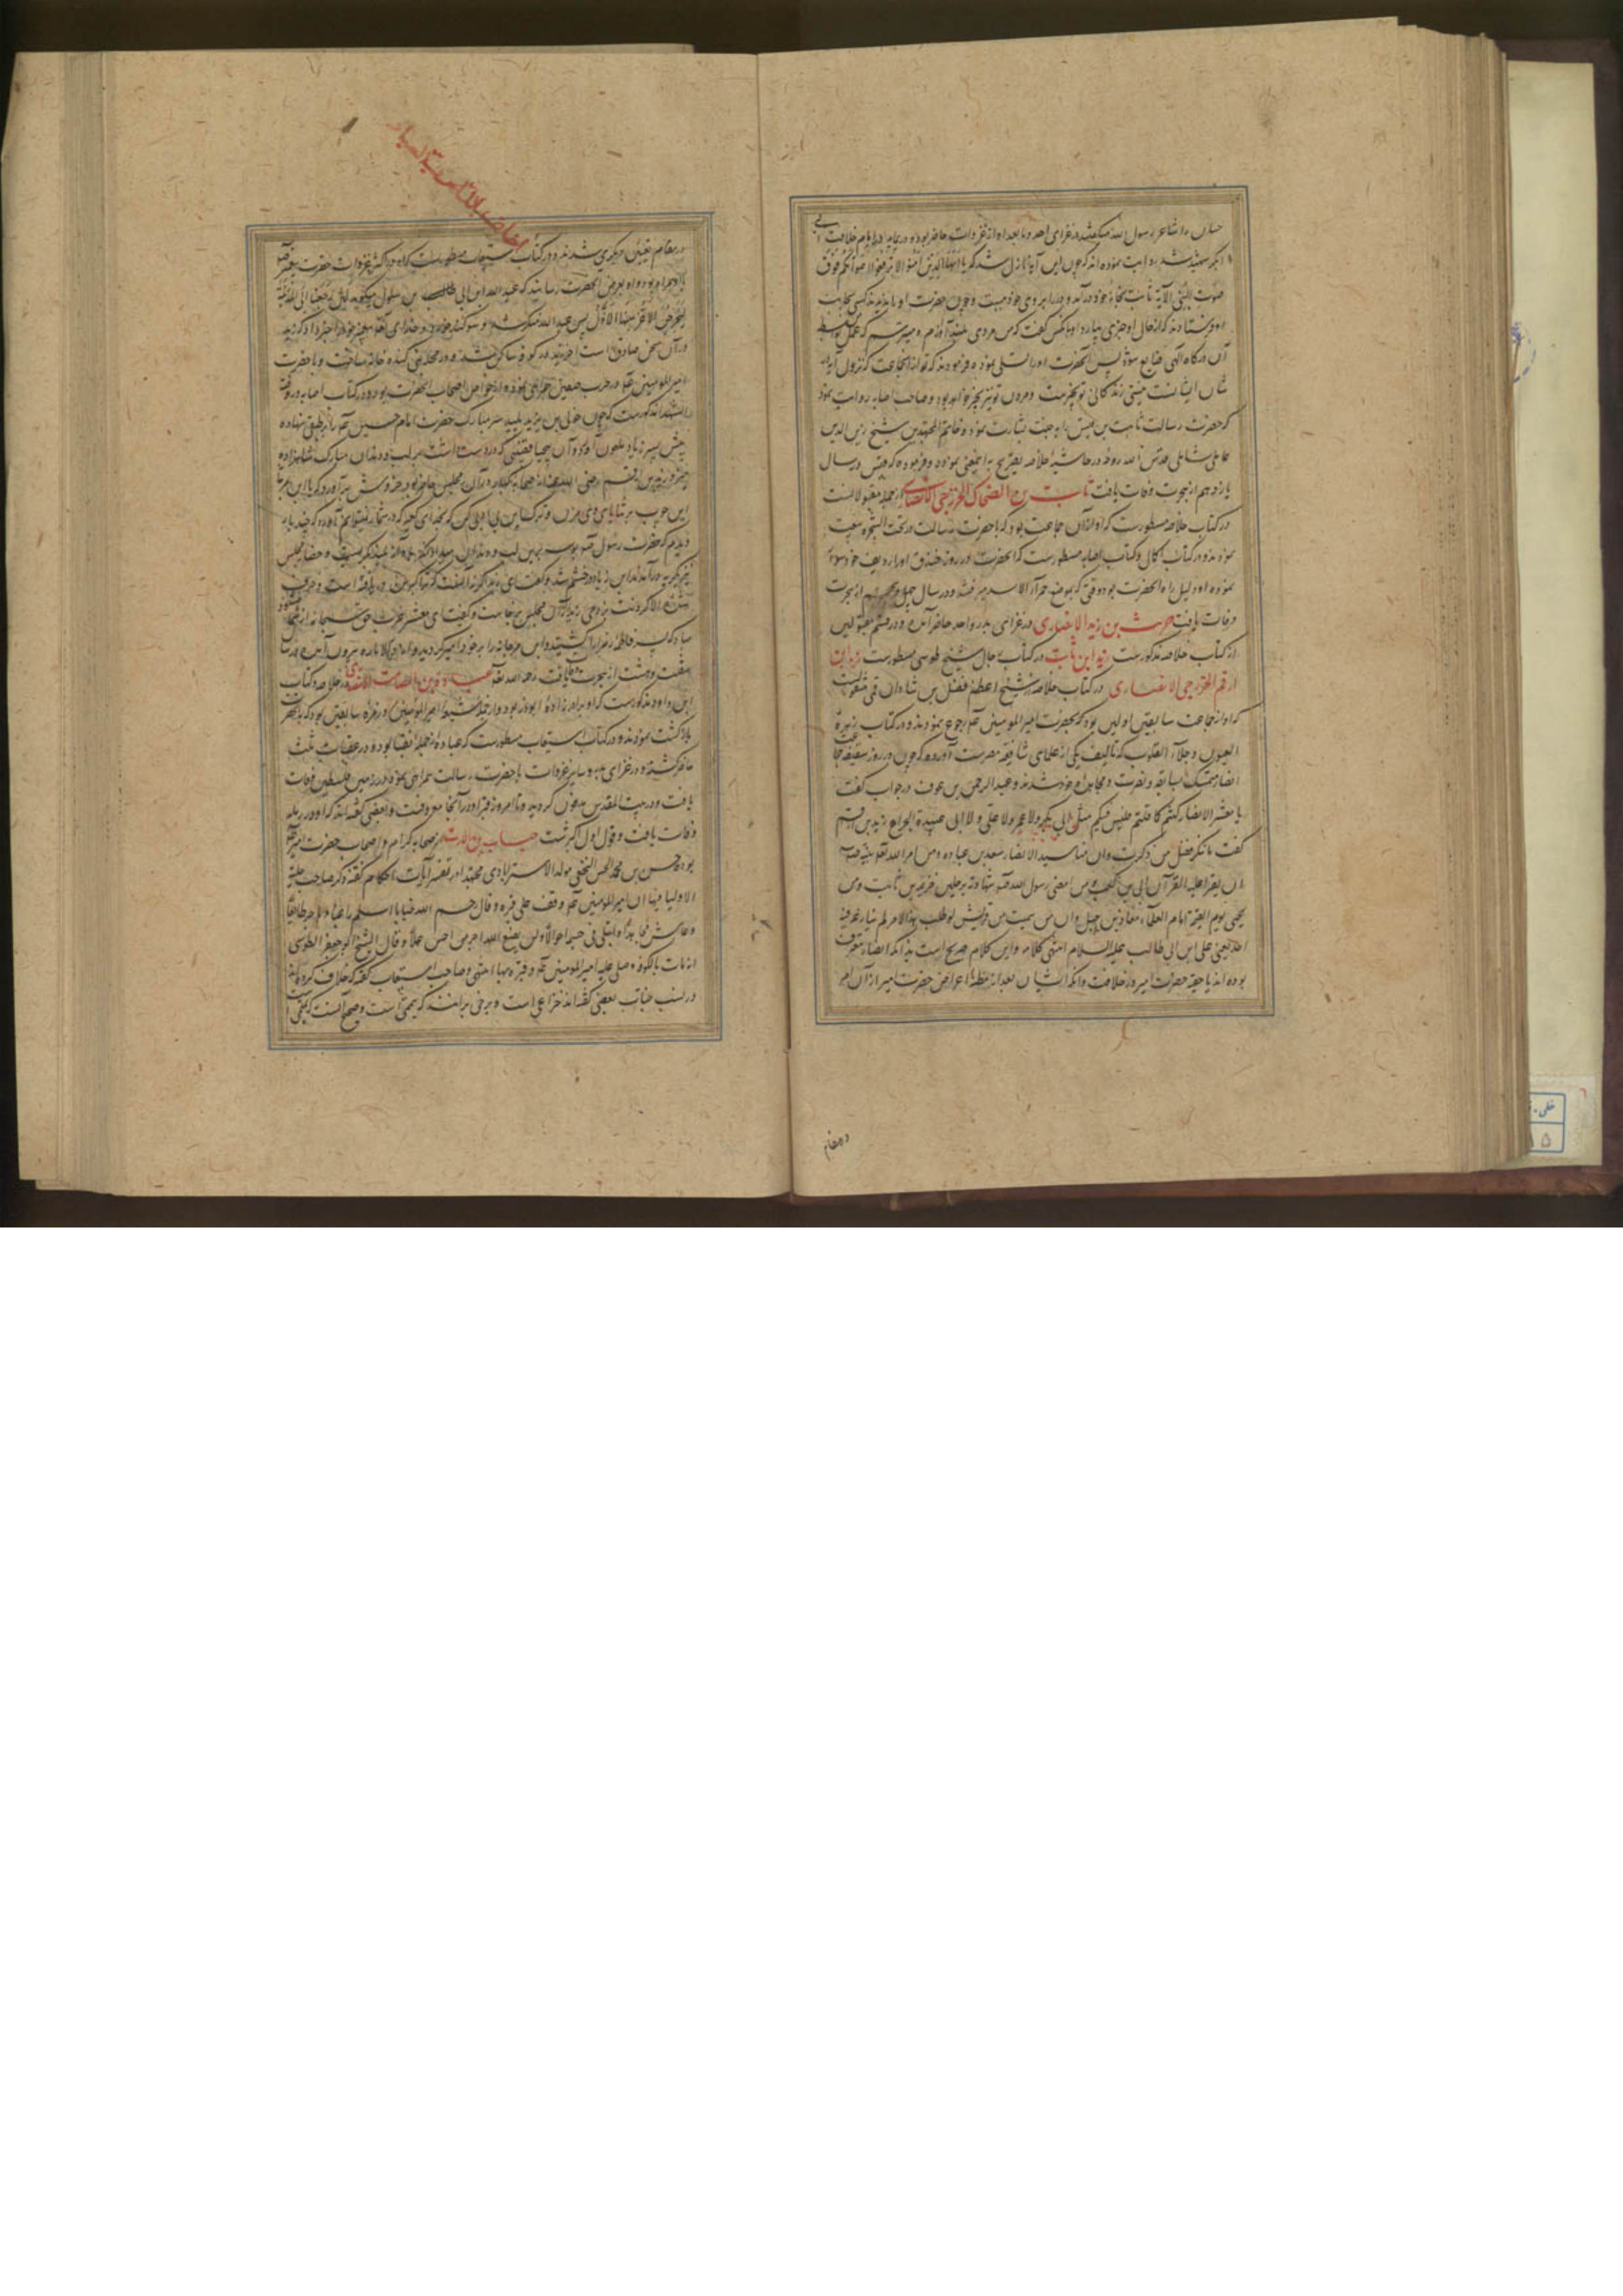 حسان را شاعر رسول الله میگفتند در غزای احد و ما بعد او از غزوات حاضر بوده و در یمامه در ایام خلافت ابی
بکر شهید شد روایت نموده اند که چون این آیه نازل شد که یا ایها الذین آمنوا لا ترفعوا اصواتکم فوق
صوت النبی الآیة ثابت بخانهٔ خود درآمد و در را بروی خود ببست و چون حضرت او را ندیدند کسی بجانب
او فرستادند که از حال او خبری بیارد او با کس گفت که من مردی بلند آوازم و میترسم که عمل من
آن درگاه الهی ضایع شود پس آنحضرت او را تسلی نموده فرمودند که تو از آن جماعت که نزول آیه در
شأن ایشانست نیستی زندگانی تو بخیرست و مردن تو نیز بخیر خواهد بود و صاحب اصابه روایت نموده
که حضرت رسالت ثابت بن قیس را به جنت بشارت نمود و خاتم المجتهدین شیخ زین الدین
عاملی شامی قدس الله روحه در حاشیهٔ خلاصه تصریح به اینمعنی نموده و فرموده که قیس در سال
یازدهم از هجرت وفات یافت ثابت بن الضحاک الخزرجی الانصاری از جمله مقبولانست
در کتاب خلاصه مسطورست که او از آن جماعت بود که با حضرت رسالت در تحت الشجره بیعت
نمودند و در کتاب اکمال و کتاب اصابه مسطورست که آنحضرت در روز خندق او را ردیف خود سوار
نموده او دلیل راه آنحضرت بود وقتی که بموضع حمراء الاسد میرفتند و در سال چهل و پنجم از هجرت
وفات یافت حرث بن زید الانصاری در غزای بدر و احد حاضر آمده و در قسم مقبولین
از کتاب خلاصه مذکورست زید ابن ثابت در کتاب رجال شیخ طوسی مسطورست زید ابن
ارقم الخزرجی الانصاری در کتاب خلاصه از شیخ اعظم فضل بن شاذان قمی منقولست
که او از جماعت سابقین اولین بود که بحضرت امیر المومنین عم رجوع نمودند و در کتاب زهرة
العیون و جلاء القلوب که تالیف یکی از علمای شافعیه مصرست آورده که چون در روز سقیفه
انصار متمسک بسابقه و نصرت و محامد خود شدند و عبد الرحمن بن عوف در جواب گفت
یا معشر الانصار لستم کما قلتم فلیس فیکم مثل ابی بکر ولا عمر ولا علی ولا ابی عبیدة الجراح زید بن ارقم
گفت ما ننکر فضل من ذکرت و ان منا سید الانصار سعد بن عباده و من امر الله تعالی نبیه
ان یقرا علیه القرآن ابی بن کعب و من امضی رسول الله صلعم شهادته برجلین خزیمة بن ثابت و من
یجیئ یوم القیمة امام العلماء معاذ بن جبل و ان من سمیت من قریش لو طلب هذا الامر لم ینازعه فیه
احد یعنی علی ابن ابی طالب علیه السلام انتهی کلامه و این کلام صریح است بدانکه انصار معترف
بوده اند باحقیت حضرت امیر در خلافت و آنکه ایشان بعد از مظنهٔ اعراض حضرت امیر از آن امر
در مقام
در مقام تعیین دیگری شدند و در کتاب استیعاب مسطورست که او در اکثر غزوات حضرت پیغمبر
همراه بود و او بعرض آنحضرت رسانید که عبد الله ابن ابی بن سلول میگوید لئن رجعنا الی المدینة
لیخرجن الاعز منها الاذل پس عبد الله منکر شد و سوگند خورد و خدای تعالی پیغمبر خود را خبر داد که زید
در آن سخن صادق است آخر زید در کوفه ساکن شد و در محله بنی کنده خانه ساخت و با حضرت
امیر المومنین عم در حرب صفین همراهی نموده و از خواص اصحاب آنحضرت بود و در کتاب اصابه و روضة
الشهدا مذکورست که چون خولی بن یزید پلید سر مبارک حضرت امام حسین عم را بر طبقی نهاده
پیش پسر زیاد ملعون آورد و آن بیحیا قضیبی که در دست داشت بر لب و دندان مبارک شاهزاده
میزد زید بن ارقم رضی الله عنه از صحابه کبار در آن مجلس حاضر بود خروش برآورد که یا ابن مرجانه
این چوب بر ثنایای وی مزن و ترک این بی ادبی کن که بخدای کعبه که در شمار نتوانم آورد که چند بار
دیدم که حضرت رسول صلعم بوسه برین لب و دندان میداد این بگفت و بآواز بلند بگریست و حضار مجلس
نیز گریه درآمدند ابن زیاد در خشم شد و گفت ای زید اگر نه آنست که تو پیر شدهٔ و خرف
گشته والا گردنت بزدمی زید از آن مجلس برخاست و گفت ای معشر عرب حق سبحانه از شما خشنود
مباد که پسر فاطمه زهرا را کشتید و ابن مرجانه را بر خود امیر گردانیدید و از دار الاماره بیرون آمد و در سال
شصت و هشت از هجرت وفات یافت رحمه الله تعالی عبادة بن الصامت الانصاری در خلاصه و کتاب
ابن داود مذکورست که او برادر زادهٔ ابوذر بود و از جمله شیعهٔ امیر المومنین و از زمره سابقین بود که بآنحضرت
بازگشت نمودند و در کتاب استیعاب مسطورست که عباده از جمله نقبا بوده و در عقبات ثلث
حاضر گشته و در غزای بدر و سایر غزوات با حضرت رسالت همراهی نموده و در زمین فلسطین وفات
یافت و در بیت المقدس مدفون گردید و تا امروز قبر او در آنجا معروفست و بعضی گفته اند که او در رمله
وفات یافت و قول اول اکثرست خباب بن الارت از صحابه کرام و اصحاب حضرت امیر عم
بود و حسن بن محمد الحسن النجفی مولدا الاسترابادی محتدا در تفسیر آیات احکام گفته ذکر صاحب حلیة
الاولیا فیها ان امیر المومنین عم وقف علی قبره و قال رحم الله خبابا اسلم راغبا و هاجر طائعا
و عاش مجاهدا و ابتلی فی جسمه احوالا و لن یضیع الله اجر من احسن عملا و قال الشیخ ابو جعفر الطوسی
انه مات بالکوفه و صلی علیه امیر المومنین عم و قبره بها انتهی و صاحب استیعاب گفته که خلاف کرده اند
در نسب خباب بعضی گفته اند خزاعی است و برخی برآنند که تمیمی است و صحیح آنست که تمیمی